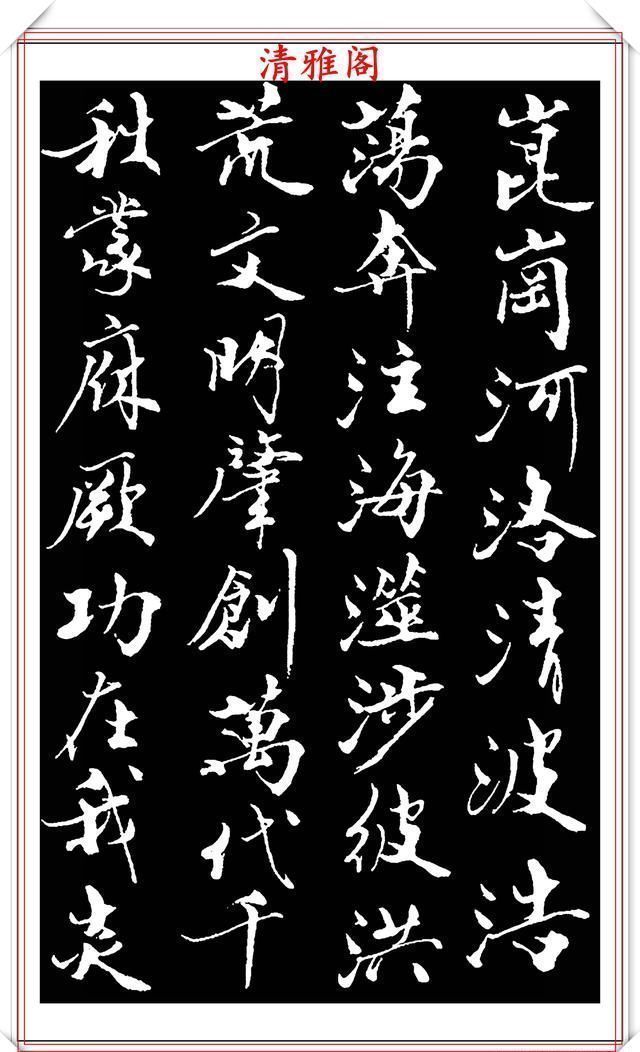 清雅阁
崑崗河洛清波浩
蕩奔注海澨涉彼洪
荒文明肇創萬代千
秋蒙庥厥功在我炎